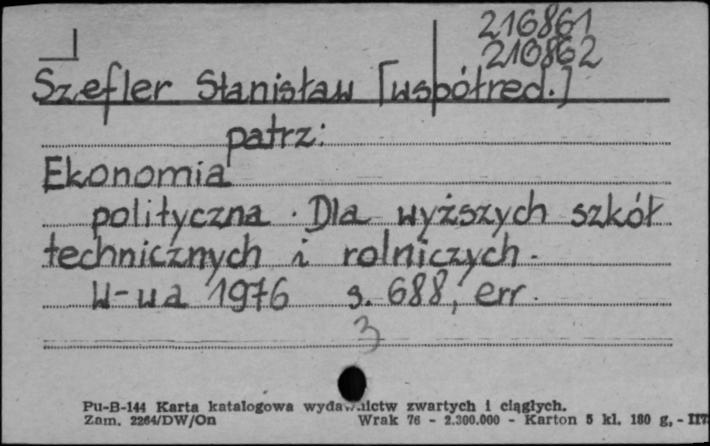 216861
210862
Szefler Stanisław [współred.]
patrz:
Ekonomia
polityczna. Dla wyższych szkół
technicznych i rolniczych.
W-wa 1976 s. 688, err.
3
Pu-B-144 Karta katalogowa wydawnictw zwartych i ciągłych.
Zam. 2264/DW/On Wrak 76 - 2.300.000 - Karton 5 kl. 180 g, -